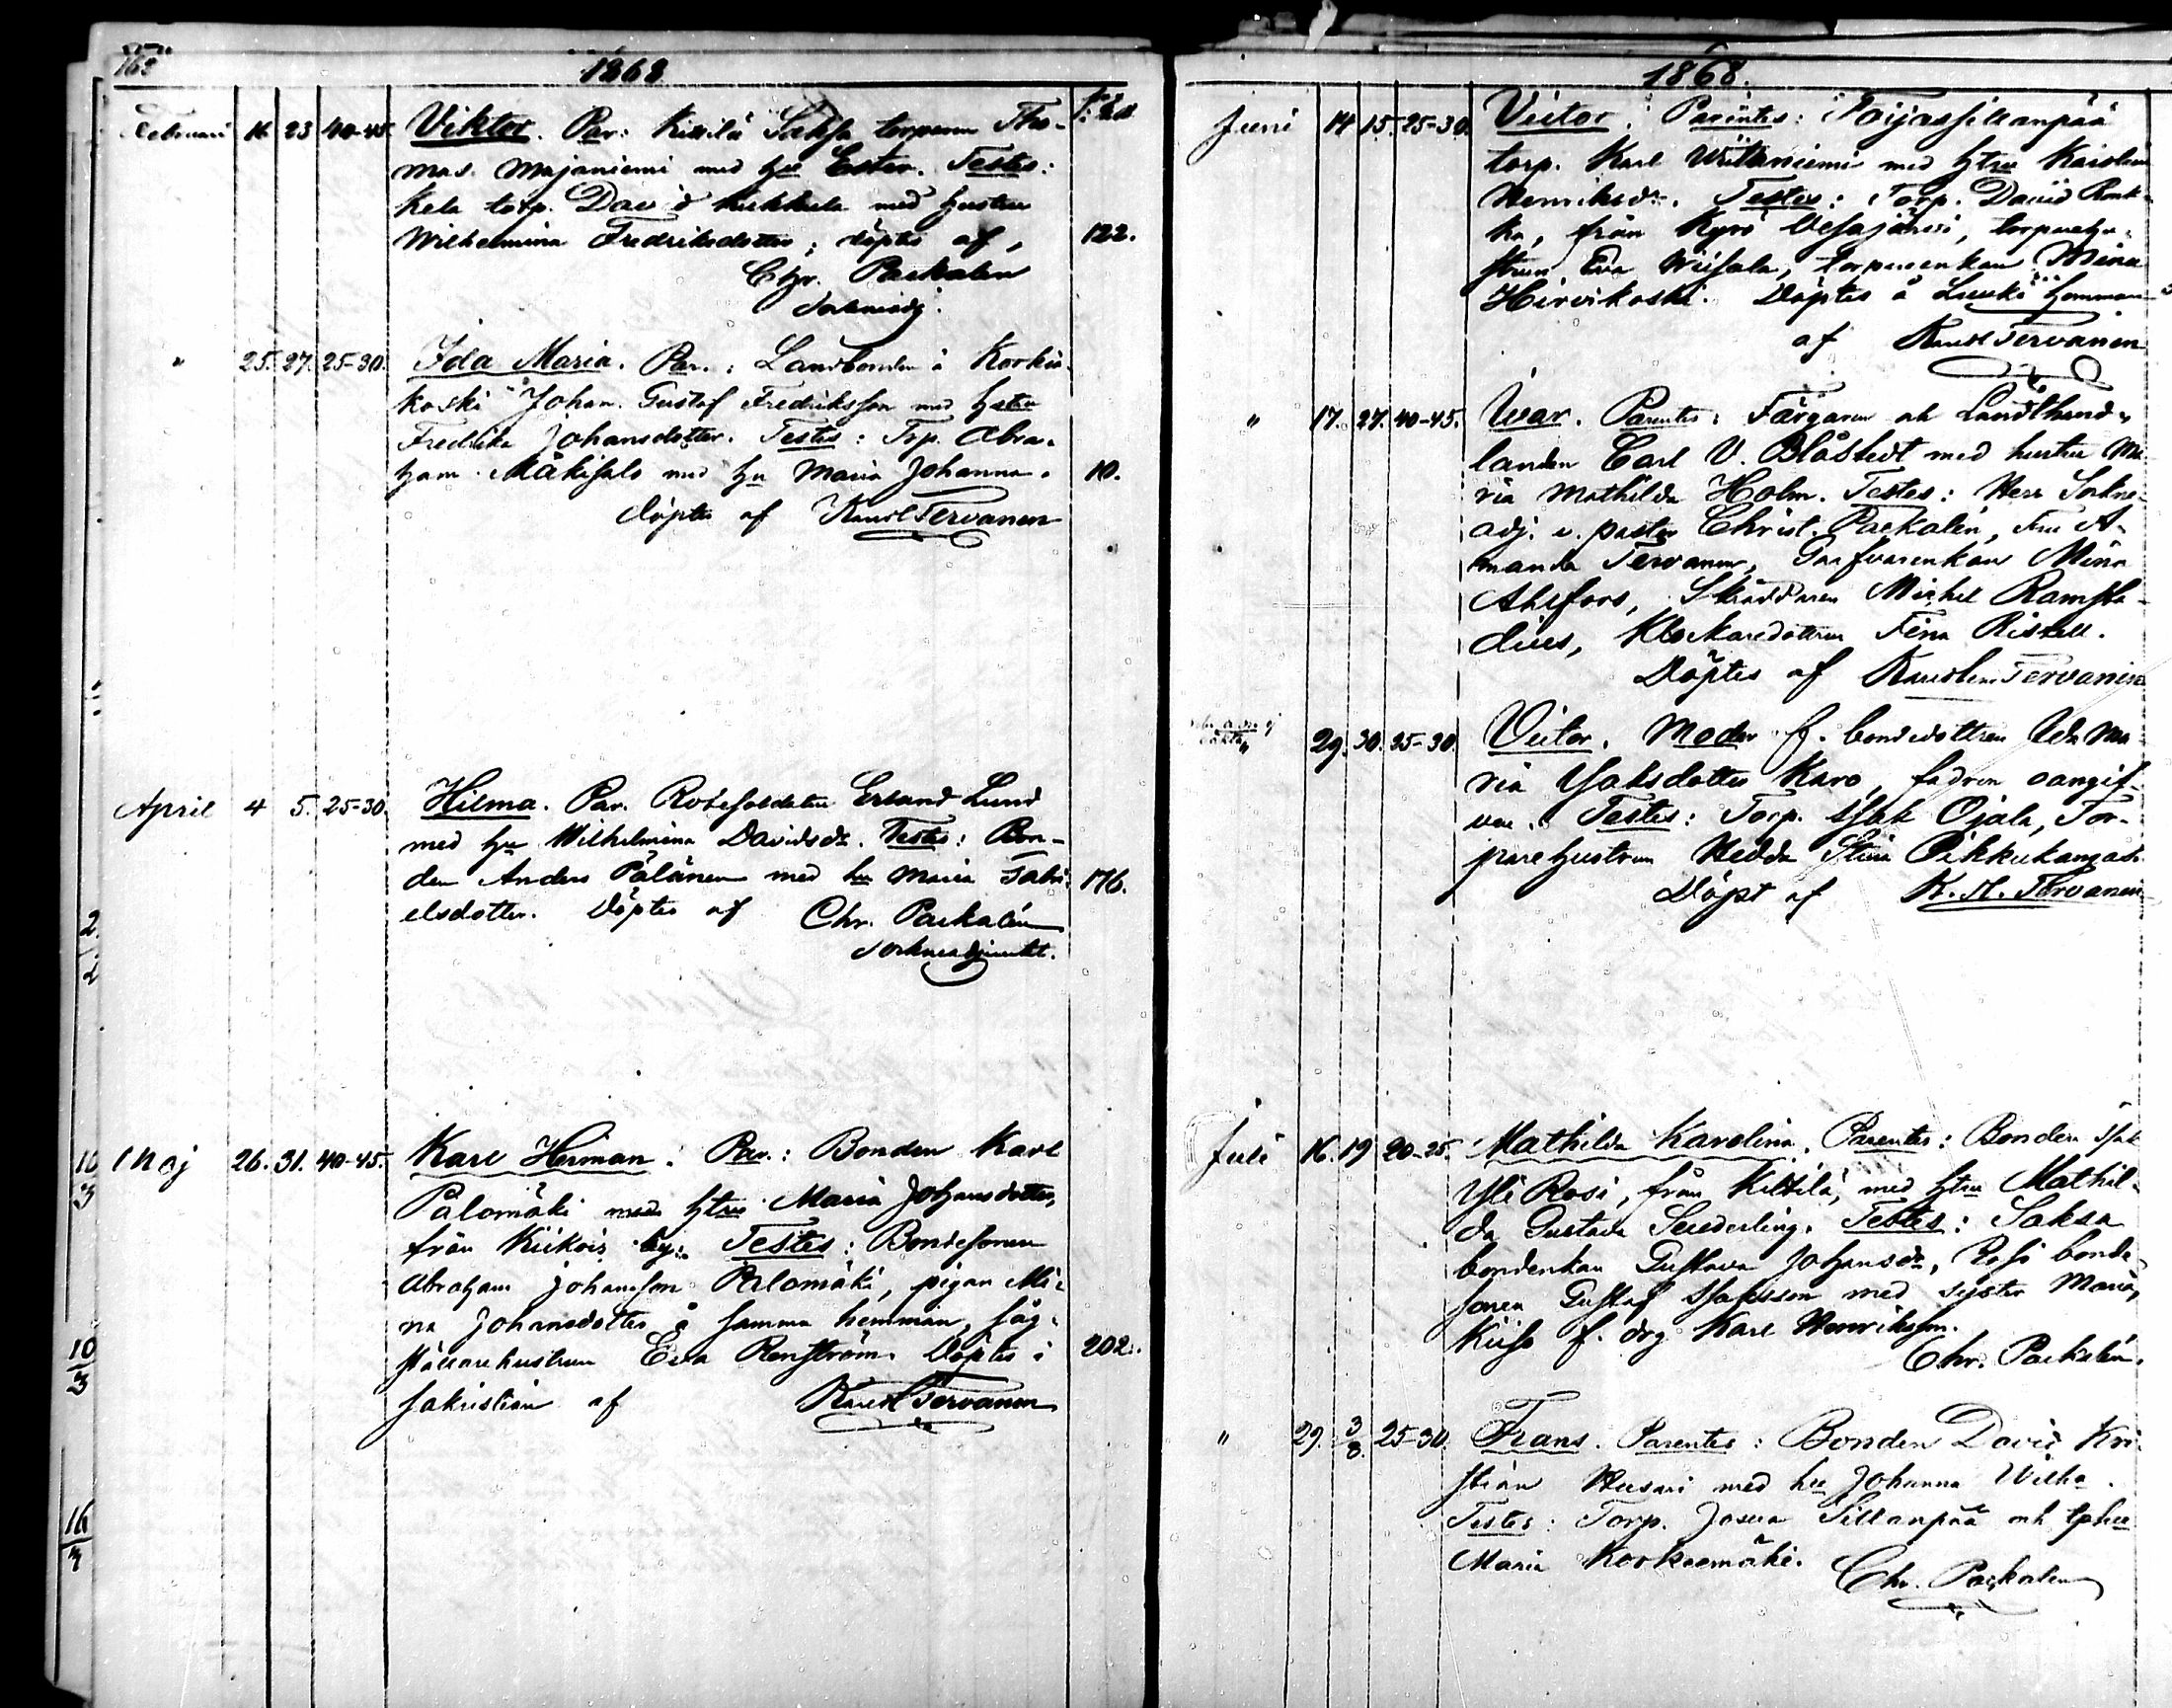 1868
Februari 16 23 40-45 Viktor. Par: Kissilä Saksa torparen Tho-
mas Majaniemi med hu Ester. Testes:
Kela torp. David Kukkula med hustru
Wilhelmina Fredriksdotter; döptes af, 122.
Chr. Packalen
Sockneadj.
" 25. 27. 25-30. Ida Maria. Par.: Landbonden i Korkia-
koski Johan Gustaf Fredriksson med hstu
Fredrika Johansdotter. Testes: Trp. Abra-
ham Mäkisalo med hu Maria Johanna. 10.
döptes af Karl Tervanen
April 4 5. 25-30. Hilma. Par. Rotesoldaten Erland Lund
med hu Wilhelmina Davidsdr. Testes: Bon-
den Anders Pälänen med hu Maria Gabri- 176.
elsdotter. Döptes af Chr. Packalén
Sockneadjunkt.
Maj 26. 31. 40-45. Karl Herman. Par.: Bonden Karl
Palomäki med htru Maria Johansdotter,
från Kiikois by. Testes: Bondesonen
Abraham Johansson Palomäki, pigan Mi-
na Johansdotter å samma hemman, såg-
ställarehustrun Eva Renström. Döptes i 202.
sakristian af Karl Tervanen
1868.
Juni 14 15. 25-30. Victor. Parentes: Poijassillanpää
torp. Karl Wiittaniemi med htru
Henriksdr. Testes: Torp. David Rank-
ka, från Kyrö Vesajärvi, torparehu-
strun Eva Wiisala, torpareenkan Mina
Hirvikoski. Döptes å hemman
af Karl Tervanen
" 17. 27. 40-45. Ivar. Parentes: Färgaren och Landthand-
landen Carl V. Blåstedt med hustru Ma-
ria Mathilda Holm. Testes: Herr Sockne-
adj. v. pastor Christ. Packalén, Fru A-
manda Tervanen, Garfvareenkan Mina
Ahlfors, Skräddaren Michel Ramsta-
dius, Klockaredottren Fina Ristell.
Döptes af Tervanen
29. 30. 25-30. Victor. Moder f. bondedottren Ida Ma-
ria Isaksdotter Karo, fadren oangif-
ven. Testes: Torp. Isak Ojala, Tor-
parehustrun Hedda Stina Pikkukangas.
Döpt af K. H. Tervanen
Juli 16. 19 20-25. Mathilda Karolina. Parentes: Bonden Isak
Yli Rosi, från Kittilä, med htru Mathil-
da Gustava Sederling. Testes: Saksa
bondenkan Gustava Johansdr, Rosi bonde
sonen Gustaf Isaksson med syster Maria,
f. drg Karl Henriksson.
Chr. Packalén.
" 29. 3/8. 25-30. Frans. Parentes: Bonden David Kri-
stian Husari med hu Johanna Wilha.
Testes: Torp. Josua Sillanpää och tphu
Maria Korkeemäki.
Chr. Packalen